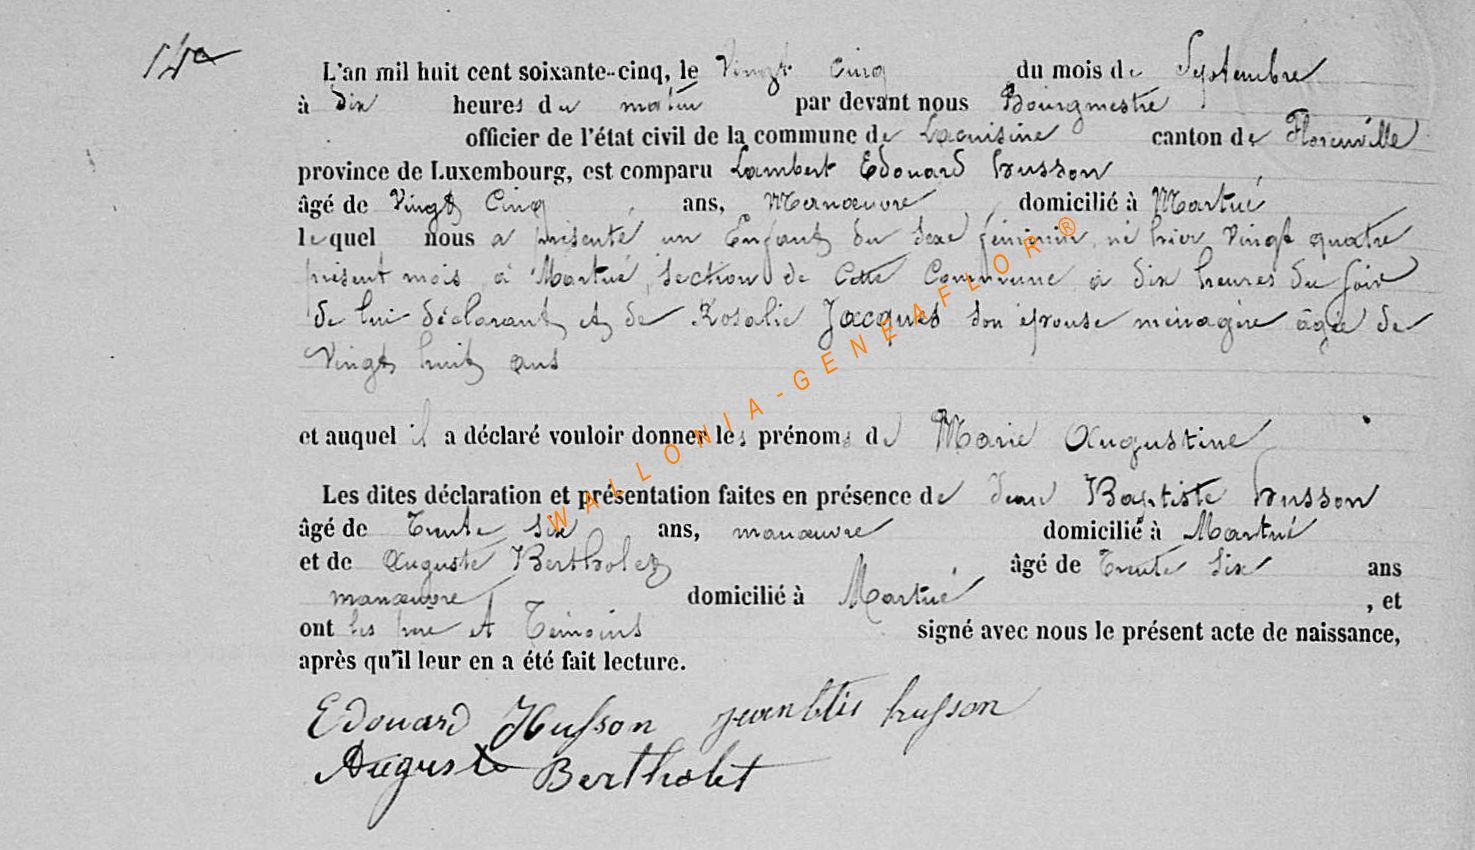 L'an mil huit cent soixante-cinq, le Vingt Cinq du mois de Septembre
à Dix heures du matin par devant nous Bourgmestre
officier de l'état civil de la commune de Lacuisine canton de Florenville
province de Luxembourg, est comparu Lambert Edouard husson
âgé de Vingt Cinq ans, Manœuvre domicilié à Martué
lequel nous a présenté un Enfant du Sexe féminin, né hier Vingt quatre
présent mois, à Martué, Section de Cette Commune à dix heures du Soir
de lui déclarant et de Rosalie Jacques son épouse ménagère âgée de
Vingt huit ans
et auquel il a déclaré vouloir donner les prénoms de Marie Augustine
Les dites déclaration et présentation faites en présence de Jean Baptiste husson
âgé de Trente Six ans, manœuvre domicilié à Martué
et de Auguste Bertholet âgé de Trente Six ans
manœuvre domicilié à Martué, et
ont les père et Témoins signé avec nous le présent acte de naissance,
après qu'il leur en a été fait lecture.
Edouard Husson jean btis husson
Auguste Bertholet
WALLONIA-GENEAFLOR®